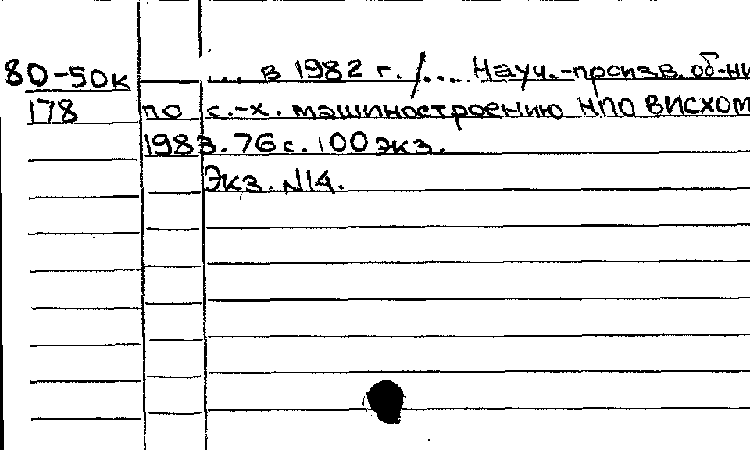 80-50к ... в 1982 г. /... Науч.-произв. об-ни
178 по с.-х. машиностроению НПО ВИСХОМ
1983. 76 с. 100 экз.
Экз. N14.